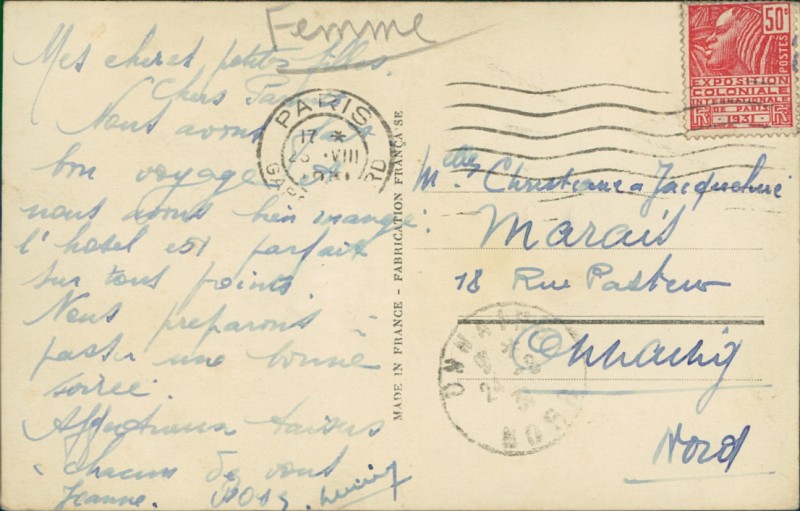 Femme
Mes chères petites filles
Chers
Nous avons fait
bon voyage et
nous avons bien mangé.
l'hotel est parfait
sur tous points
Nous preparons à
passer une bonne
soirée.
Affectueux baisers
à chacun de vous
Jeanne.
PARIS
17 *
VIII
MADE IN FRANCE - FABRICATION FRANÇAISE
50c
POSTES
EXPOSITION
COLONIALE
INTERNATIONALE
DE PARIS
1931
Mlles Christiane & Jacqueline
Marais
18 Rue Pasteur
Onnaing
Nord
ONNAING
NORD